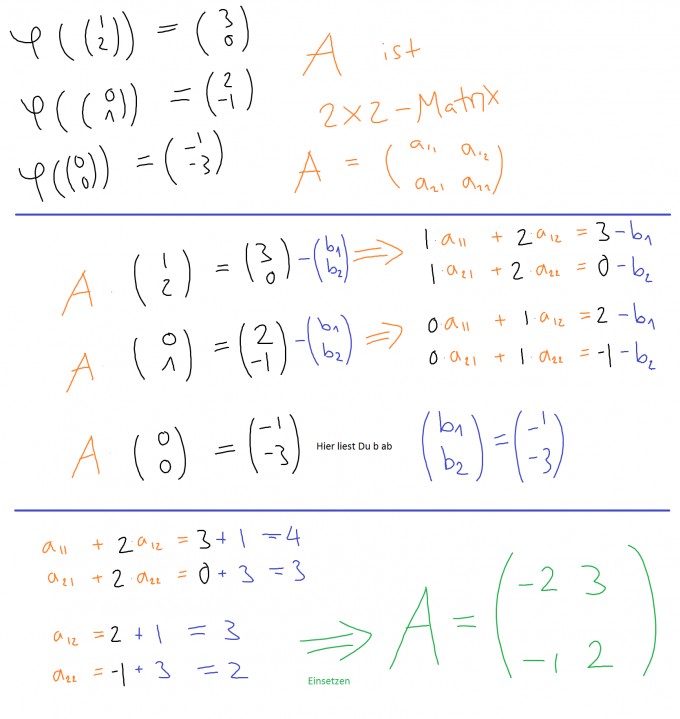 φ((1 2)) = (3 0)
φ((0 1)) = (2 -1)
φ((0 0)) = (-1 -3)
A ist
2x2-Matrix
A = (a₁₁ a₁₂
a₂₁ a₂₂)
A · (1 2) = (3 0) - (b₁ b₂) ⟹ 1·a₁₁ + 2·a₁₂ = 3 - b₁
1·a₂₁ + 2·a₂₂ = 0 - b₂
A (0 1) = (2 -1) - (b₁ b₂) ⟹ 0·a₁₁ + 1·a₁₂ = 2 - b₁
0·a₂₁ + 1·a₂₂ = -1 - b₂
A (0 0) = (-1 -3) Hier liest Du b ab (b₁ b₂) = (-1 -3)
a₁₁ + 2·a₁₂ = 3 + 1 = 4
a₂₁ + 2·a₂₂ = 0 + 3 = 3
a₁₂ = 2 + 1 = 3
a₂₂ = -1 + 3 = 2
⟹
Einsetzen
A = (-2 3
-1 2)